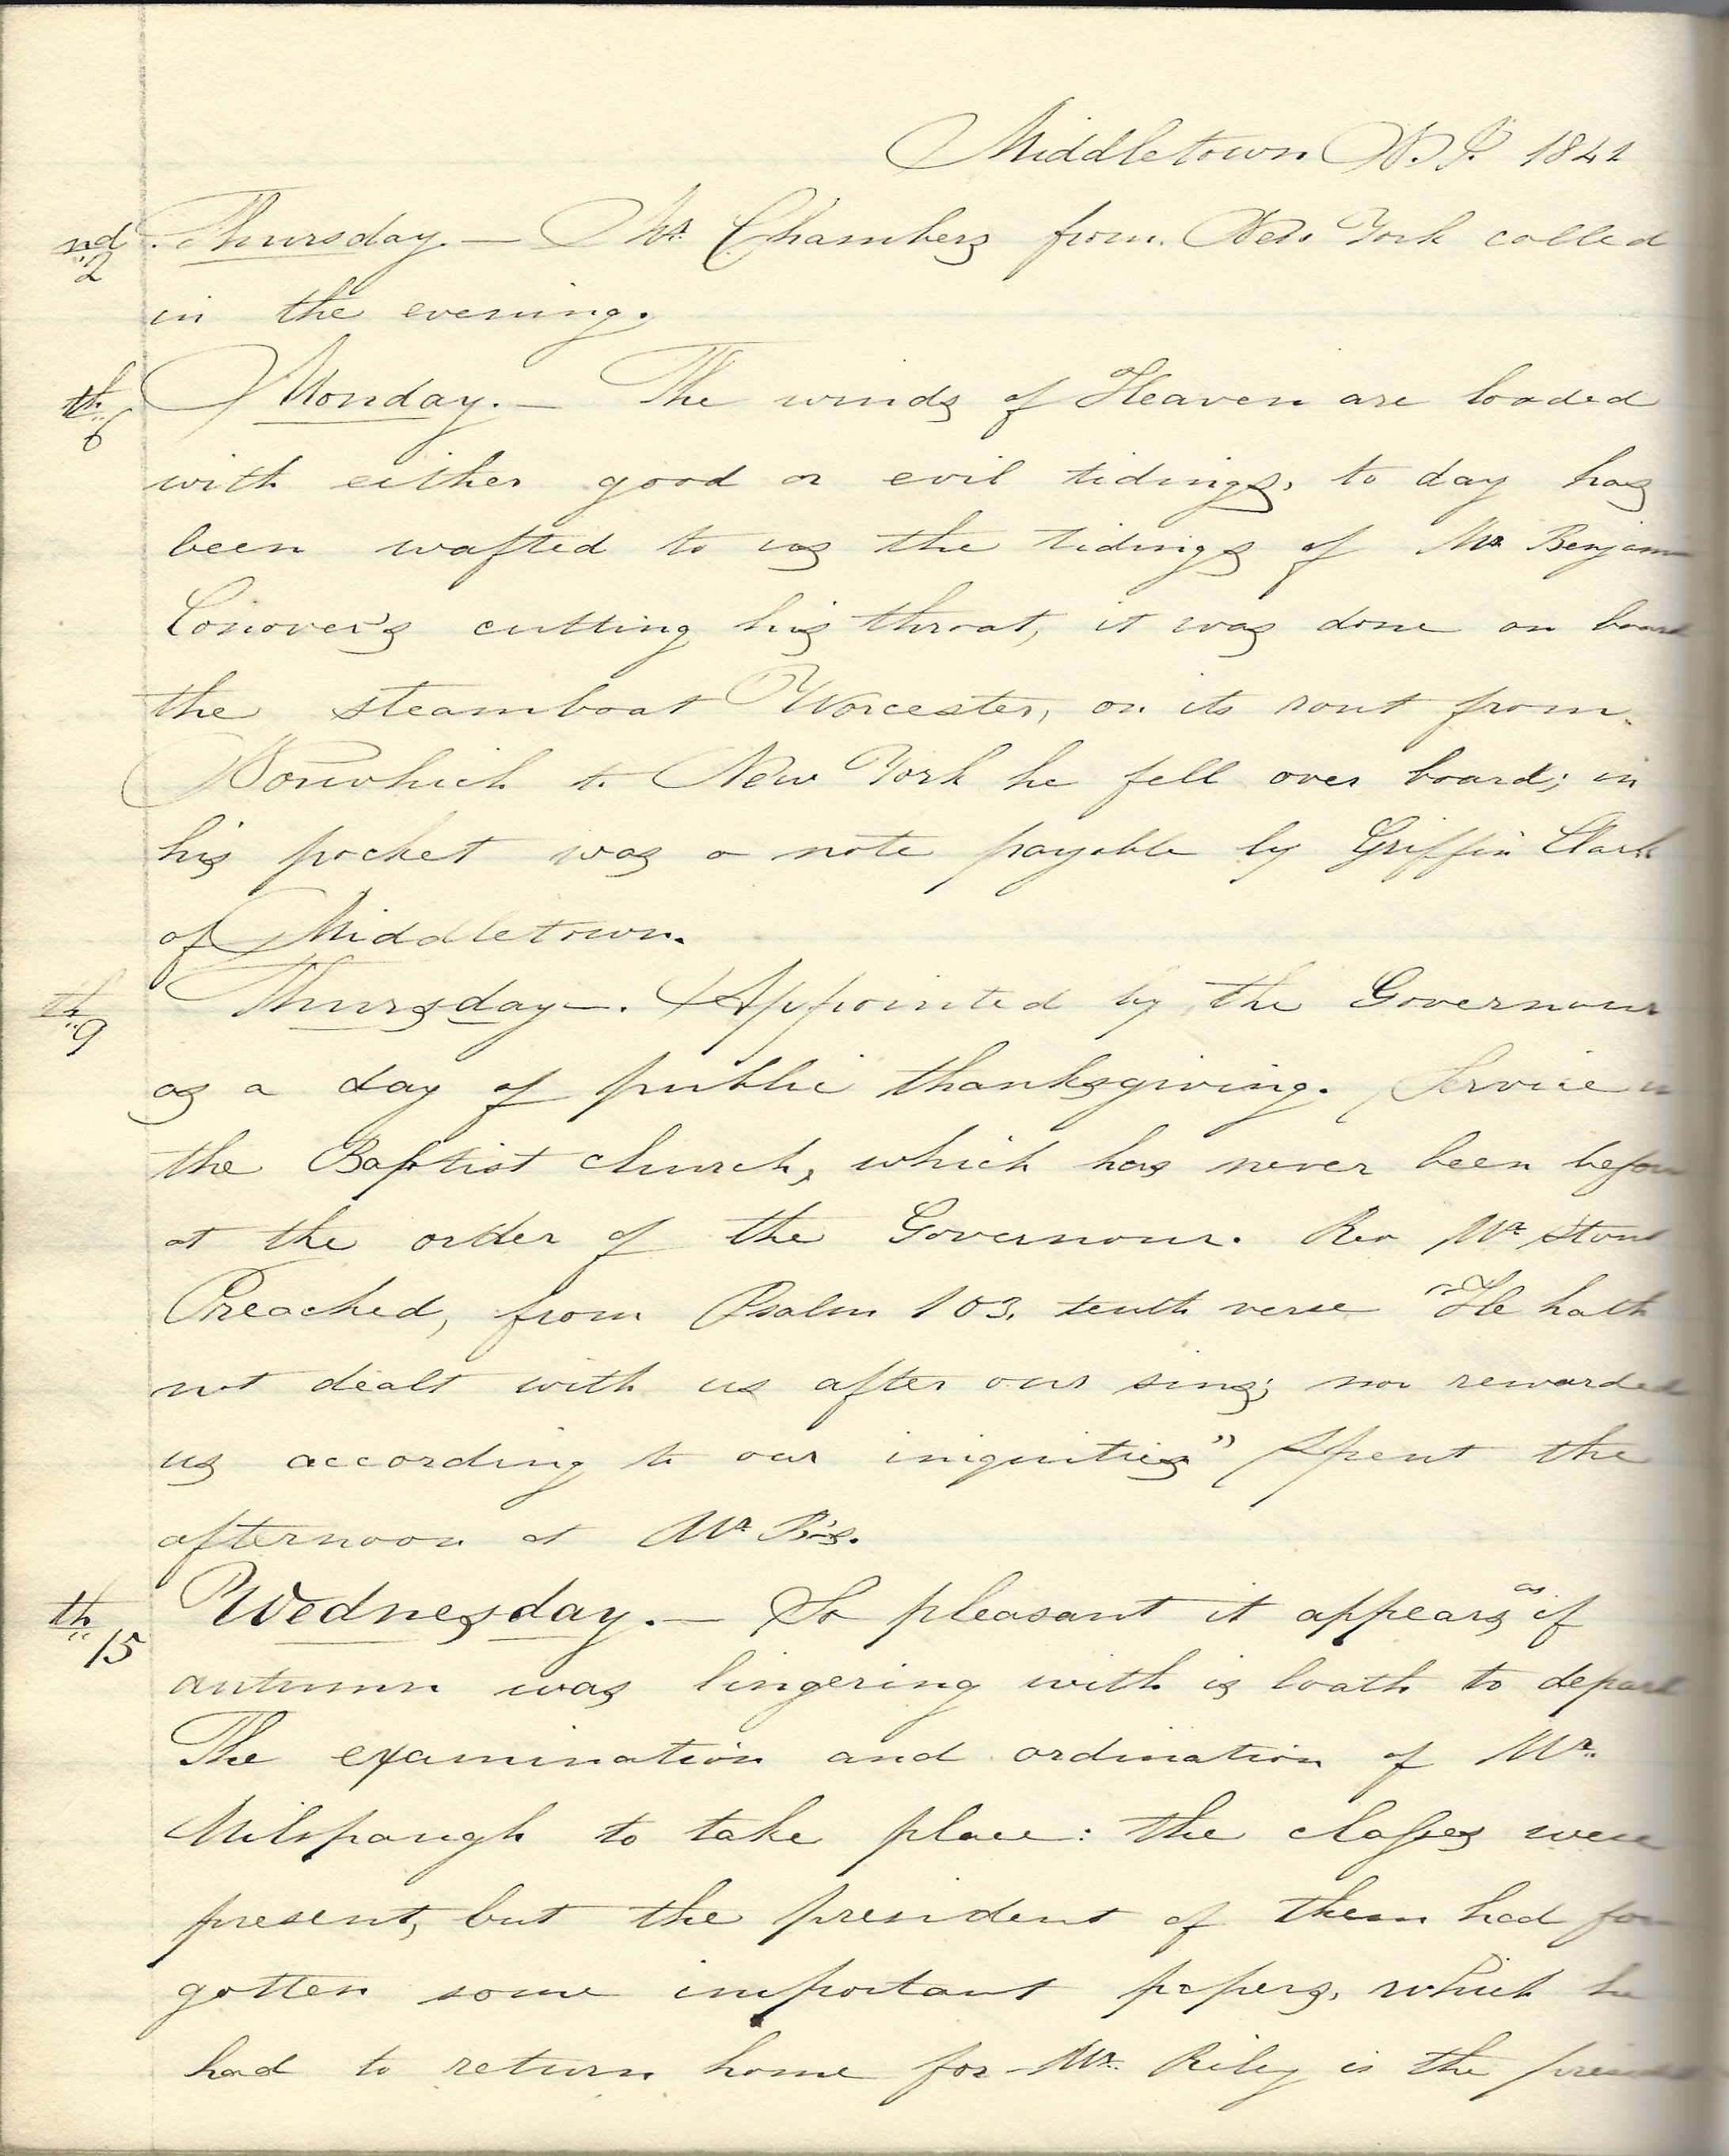 Middletown N.J. 1841
nd 2 Thursday. — Mr Chambers from New York called
in the evening.
th 6 Monday. — The winds of Heaven are loaded
with either good or evil tidings, to day has
been wafted to us the tidings of Mr Benjamin
Conover's cutting his throat, it was done on board
the steamboat Worcester, on its rout from
Norwhich to New York he fell over board; in
his pocket was a note payable by Griffin Clark
of Middletown.
th 9 Thursday —. Appointed by the Governour
as a day of public thanksgiving. Service in
the Baptist church, which has never been before
at the order of the Governour. Rev Mr Stout
Preached, from Psalm 103, tenth verse "He hath
not dealt with us after our sins; nor rewarded
us according to our iniquities" Spent the
afternoon at Mr B's.
th 15 Wednesday. — So pleasant it appears as if
autumn was lingering with is loath to depart
The examination and ordination of Mr.
Milspaugh to take place: the classes were
present, but the president of them had for
gotten some important papers, which he
had to return home for Mr. Riley is the